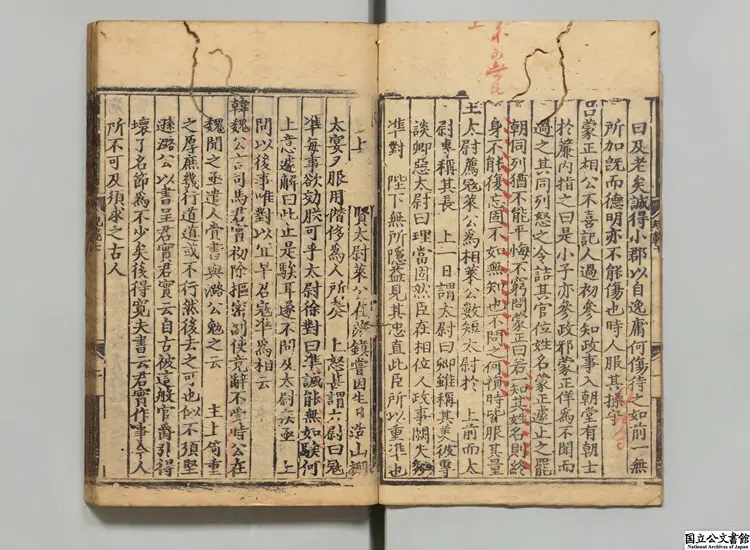 曰及老矣誠得小郡以自逸庸何傷待之如前一無
所加既而德明亦不能傷也時人服其操守
呂蒙正相公不喜記人過初參知政事入朝堂有朝士
於簾內指之曰是小子亦參政邪蒙正佯爲不聞而
過之其同列怒之令詰其官位姓名蒙正遽止之罷
朝同列猶不能平悔不窮問蒙正曰若一知其姓名則終
身不能復忘固不如無知也不問之何損時皆服其量
王太尉薦寇萊公爲相萊公數短太尉於 上前而太
尉專稱其長 上一日謂太尉曰卿雖稱其美彼專
談卿惡太尉曰理當固然臣在相位人政事闕失
準對 陛下無所隱益見其忠直此臣所以重準也
上 太尉萊公在鎮嘗因生日造山棚
太宴又服用階侈爲人所奏 上怒甚謂太尉曰寇
準每事欲効朕可乎太尉徐對曰準誠能無如騃何
上意遽解曰此止是騃耳遂不問及太尉 上
問以後事唯對以宜早召寇準爲相云
韓魏公言司馬君實初除樞密副使竟辭不 時公在
魏聞之亟遣人賫書與潞公勉之云 主上倚重
之厚庶幾行道道或不行然後去之可也似不須堅
遜潞公以書呈君實君實云自古被這般官爵引得
壞了名節爲不少矣後得寬夫書云君實作事今人
所不可及須求之古人
国立公文書館
National Archives of Japan